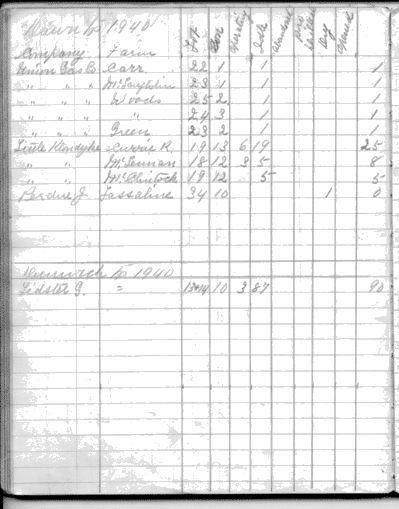 Dawn to 1940
Company Farm Lot Con Operating Idle Abandoned Dry
Union Gas Co. Carr 22 1 1 1
" " " " McLaughlin 23 1 1 1
" " " " Woods 25 2 1 1
" " " " " 24 3 1 1
" " " " Green 23 2 1 1
Little Klondyke Currie R. 19 13 6 19 25
" " McLennan 18 12 3 5 8
" " McClintock 19 12 5 5
Perdue J. Lassaline 34 10 1 0
to 1940
Lidster G. " 13+14 10 3 87 90